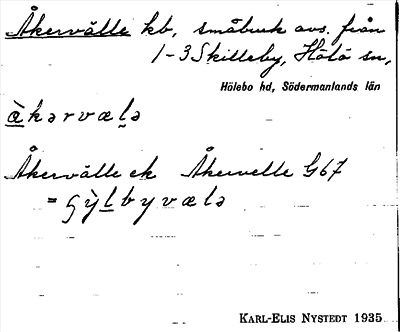 Åkervälle kb, småbruk avs. från
1-3 Skilleby, Hölö sn,
Hölebo hd, Södermanlands län
àkərvælə
Åkervälle ek Åkervelle G67
= gỳlbyvælə
KARL-ELIS NYSTEDT 1935